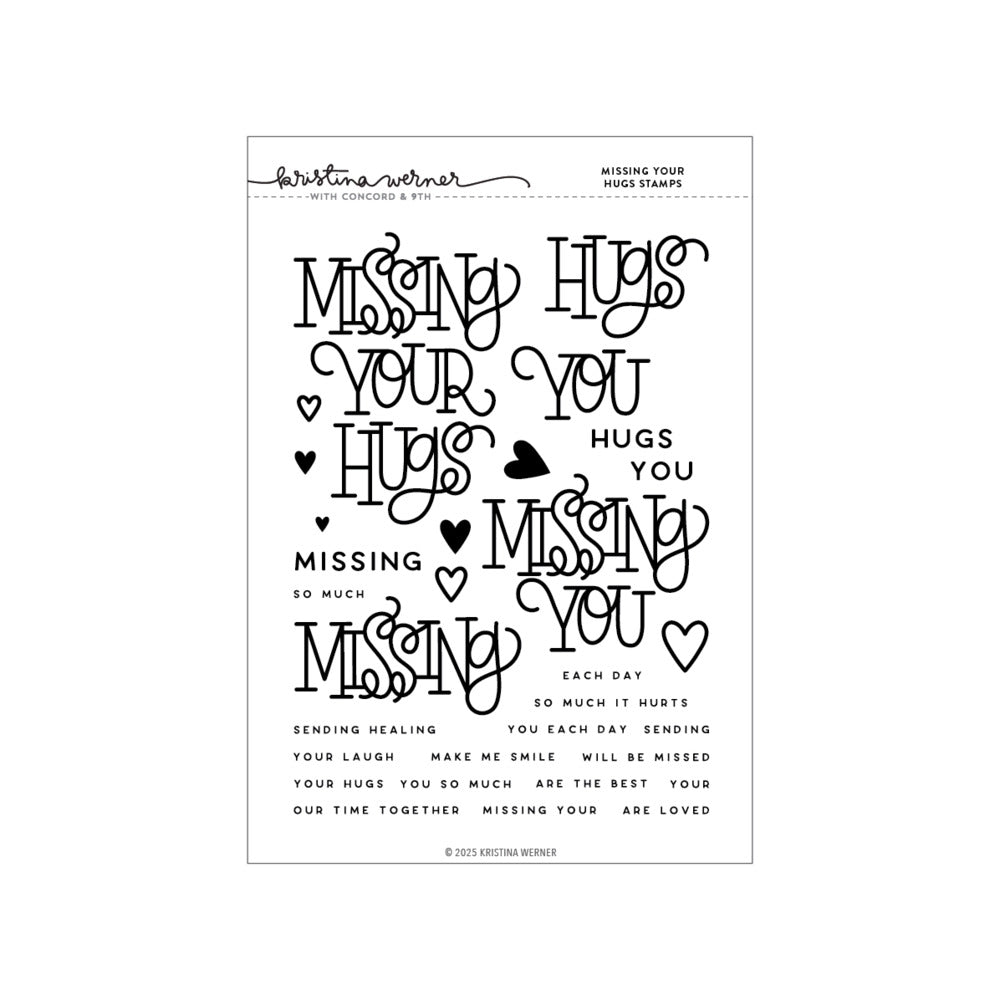 kristina werner
WITH CONCORD & 9TH
MISSING YOUR
HUGS STAMPS
MISSING
YOUR
HUGS
HUGS
YOU
HUGS
YOU
MISSING
YOU
MISSING
SO MUCH
MISSING
EACH DAY
SO MUCH IT HURTS
SENDING HEALING YOU EACH DAY SENDING
YOUR LAUGH MAKE ME SMILE WILL BE MISSED
YOUR HUGS YOU SO MUCH ARE THE BEST YOUR
OUR TIME TOGETHER MISSING YOUR ARE LOVED
© 2025 KRISTINA WERNER